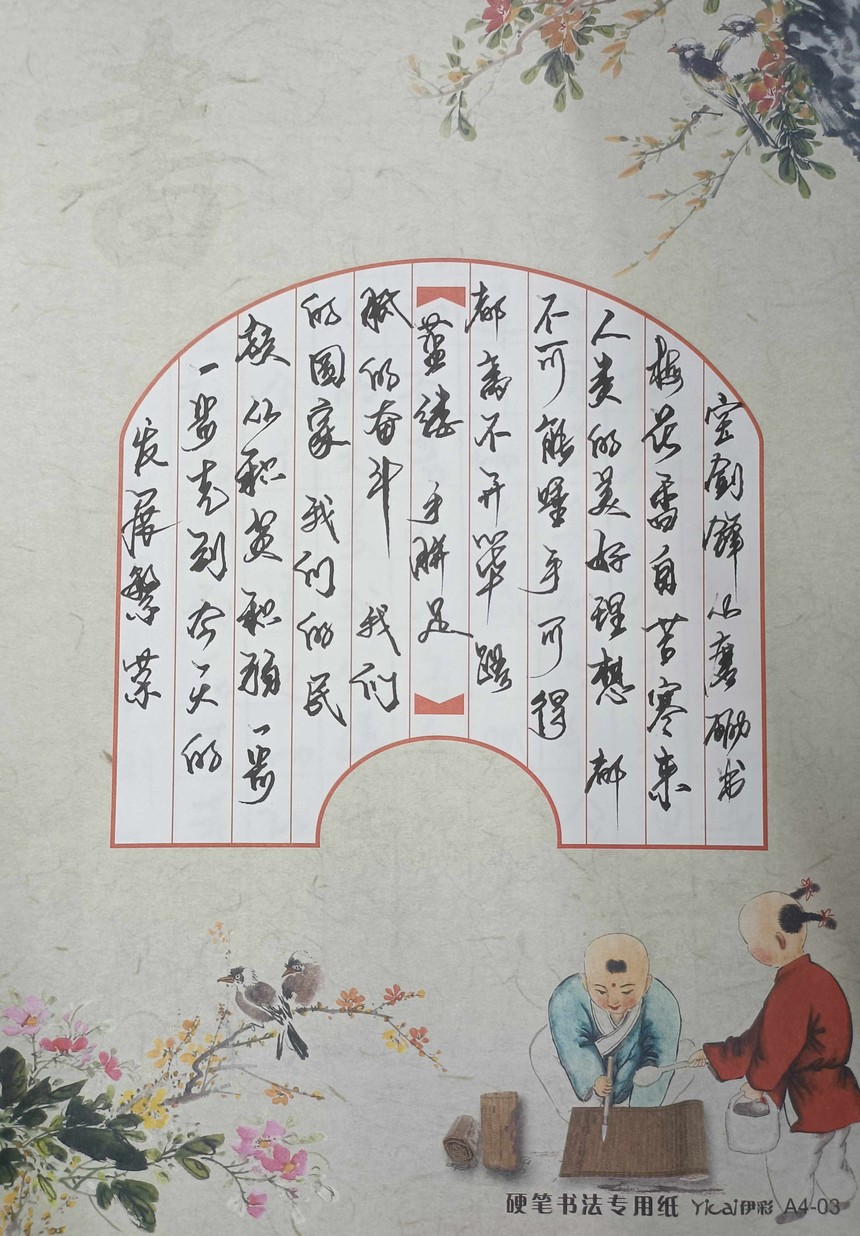 宝剑锋从磨砺出
梅花香自苦寒来
人类的美好理想 都
不可能唾手可得
都离不开筚路
蓝缕 手胼足
胝的奋斗 我们
的国家 我们的民
族 从积贫积弱一步
一步走到今天的
发展繁荣
硬笔书法专用纸 Yicai伊彩 A4-03